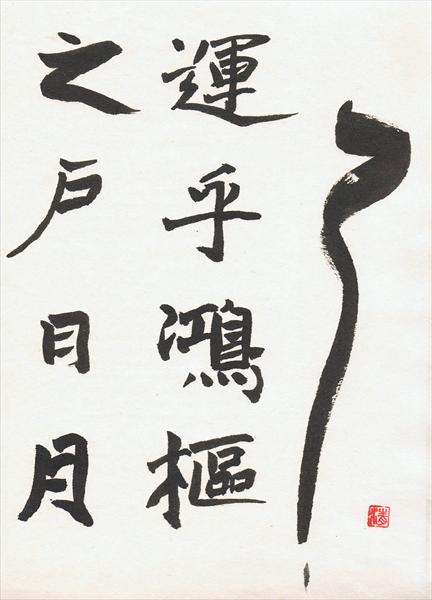 運乎鴻樞
之戶日月